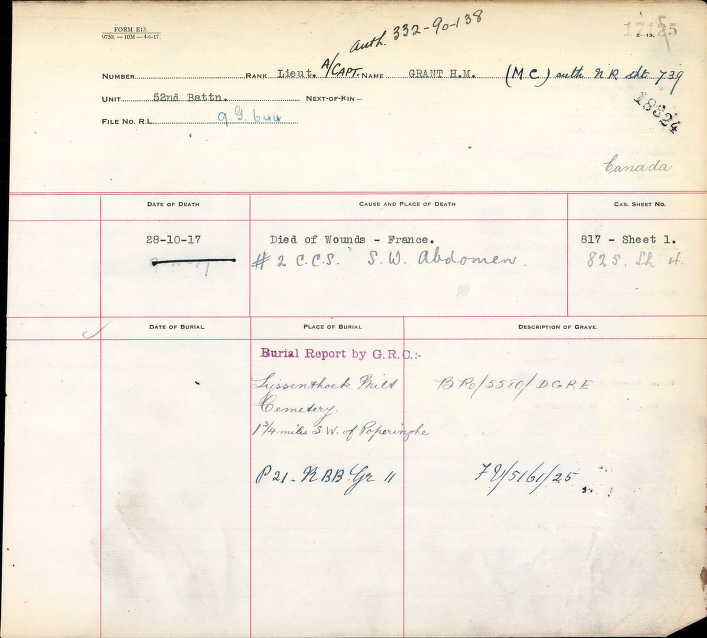 FORM E13.
9750. — 10M — 4-6-17.
Auth. 332-90-138
E-13.
NUMBER RANK Lieut. A/CAPT. NAME GRANT H.M. (MC) auth N R sht. 739
UNIT 52nd Battn. NEXT-OF-KIN—
18824
FILE No. R.L.
Canada
DATE OF DEATH CAUSE AND PLACE OF DEATH CAS. SHEET NO.
28-10-17 Died of Wounds - France. 817 - Sheet 1.
# 2 C.C.S. S.W. Abdomen. 825. Sh 4.
DATE OF BURIAL PLACE OF BURIAL DESCRIPTION OF GRAVE.
Burial Report by G.R.C:-
Lyssenthoek Milt BRo/5580/DGRE
Cemetery.
1¾ miles S.W. of Poperinghe
P 21 - R BB Gr 11